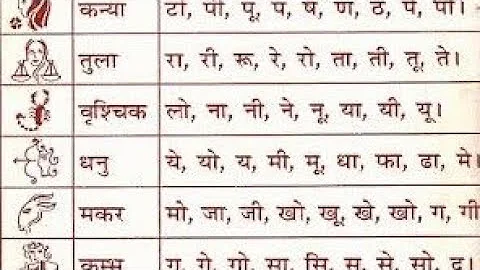 कन्या टो, पी, पू, प, ष, ण, ठ, पे, पो।
तुला रा, री, रू, रे, रो, ता, ती, तू, ते।
वृश्चिक लो, ना, नी, ने, नू, या, यी, यू।
धनु ये, यो, य, मी, मू, धा, फा, ढा, मे।
मकर मो, जा, जी, खो, खू, खे, खो, ग, गी
कुम्भ गु, गे, गो, सा, सि, सु, से, सो, द।